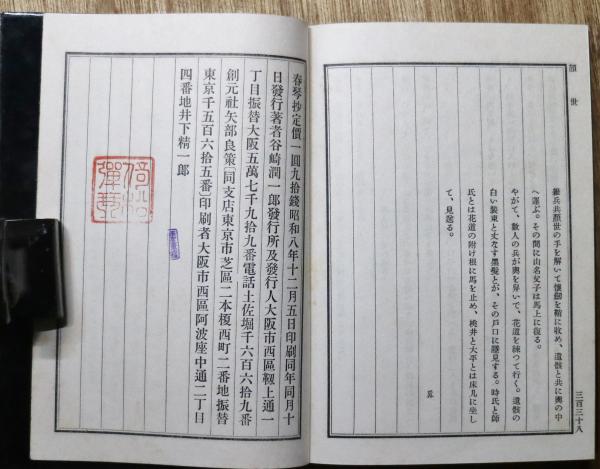 顏世
三百三十八
雜兵共顏世の手を解いて懷劍を鞘に收め、遺骸と共に輿の中
へ運ぶ。その間に山名女子は馬上に復る。
やがて、數人の兵が輿を舁いで、花道を練つて行く。遺骸の
白い裝束と丈なす黑髮とが、その戶口に隱見する。時氏と師
氏とは花道の附け根に馬を止め、桃井と大平とは床几に坐し
て、見送る。
春琴抄定價一圓九拾錢昭和八年十二月五日印刷同年同月十
日發行著者谷崎潤一郎發行所及發行人大阪市西區靱上通一
丁目振替大阪五萬七千九拾九番電話土佐堀千六百六拾九番
創元社矢部良策﹝同支店東京市芝區二本榎西町二番地振替
東京千五百六拾五番﹞印刷者大阪市西區阿波座中通二丁目
四番地井下精一郎
倚松